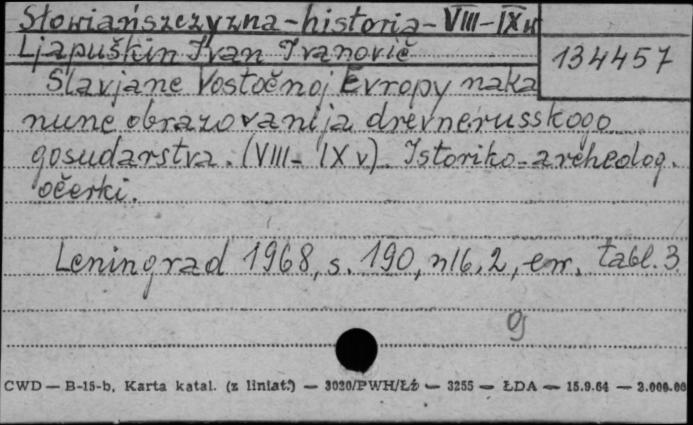 Słowiańszczyzna-historia-VIII-IX w
Ljapuškin Ivan Ivanovič
134457
Slavjane Vostočnoj Evropy naka
nune obrazovanija drevnerusskogo
gosudarstva. (VIII-IX v). Istoriko-archeolog.
očerki.
Leningrad 1968, s. 190, nlb. 2, err. tabl. 3
CWD — B-15-b, Karta katal. (z liniat.) — 3020/PWH/Łż — 3255 — ŁDA — 15.9.64 — 3.000.00